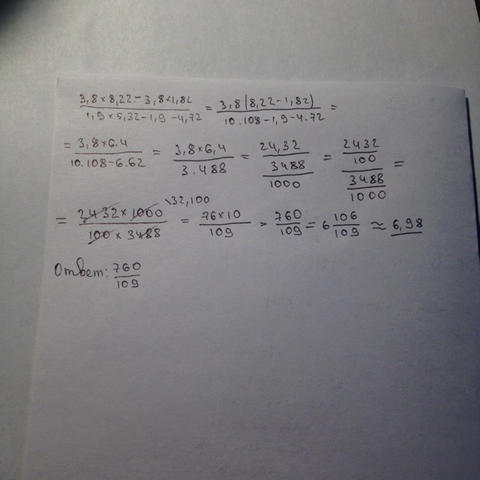 (3,8 × 8,22 − 3,8 × 1,82) / (1,9 × 5,32 − 1,9 − 4,72) = 3,8(8,22 − 1,82) / (10.108 − 1,9 − 4.72) =
= (3,8 × 6.4) / (10.108 − 6.62) = (3,8 × 6,4) / 3.488 = 24,32 / (3488/1000) = (2432/100) / (3488/1000) =
= (2432 × 1000) / (100 × 3488) \32,100 = (76 × 10) / 109 = 760/109 = 6 106/109 ≈ 6,98
Ответ: 760/109